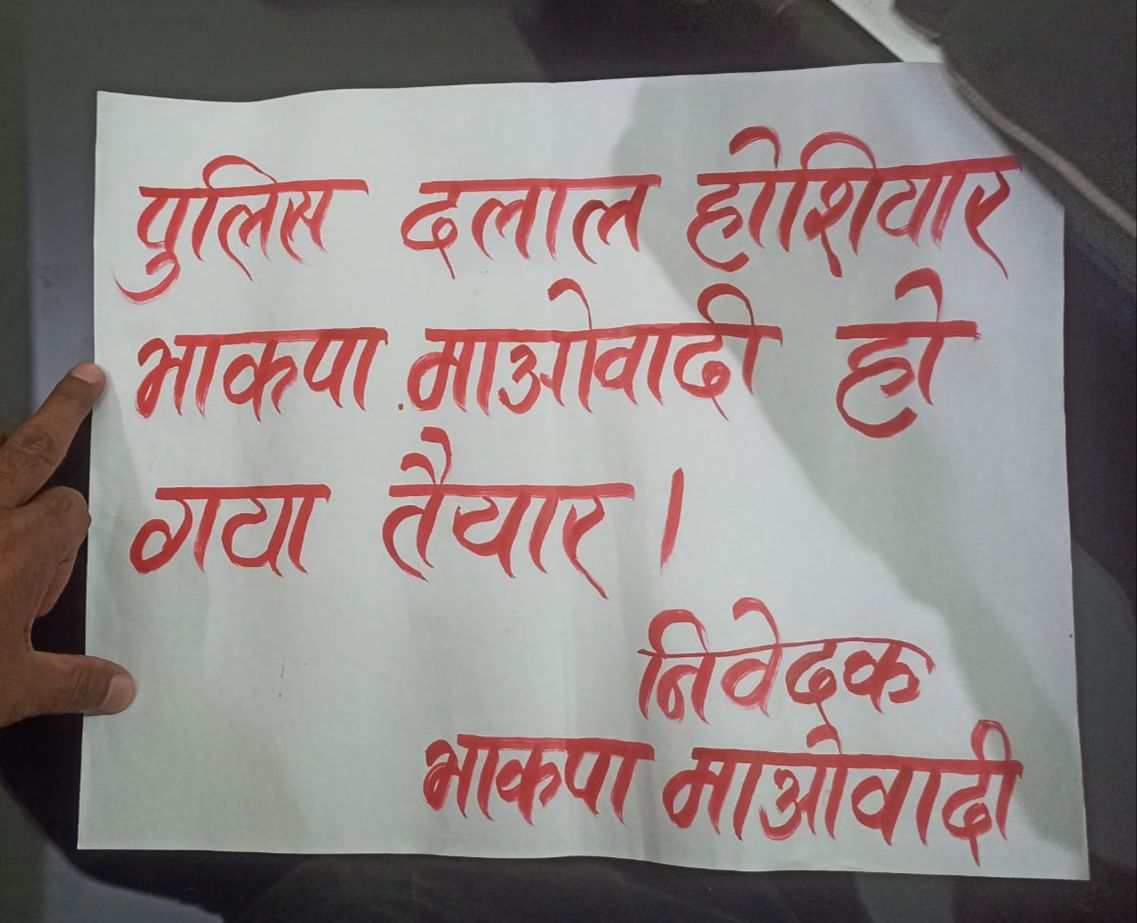 पुलिस दलाल होशियार
भाकपा माओवादी हो
गया तैयार।
निवेदक
भाकपा माओवादी